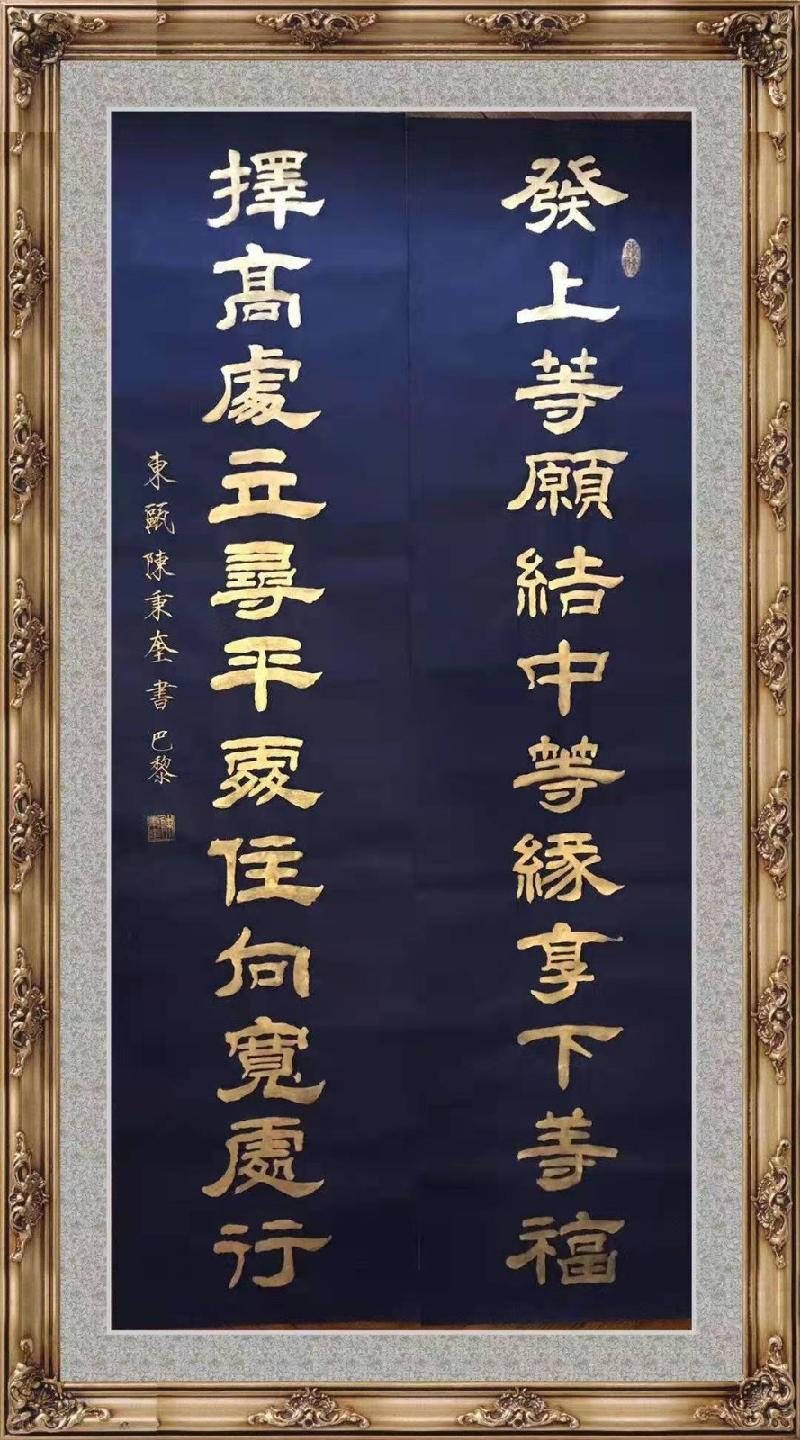 發上等願結中等緣享下等福
擇高處立尋平處住向寬處行
東甌陳秉奎書巴黎